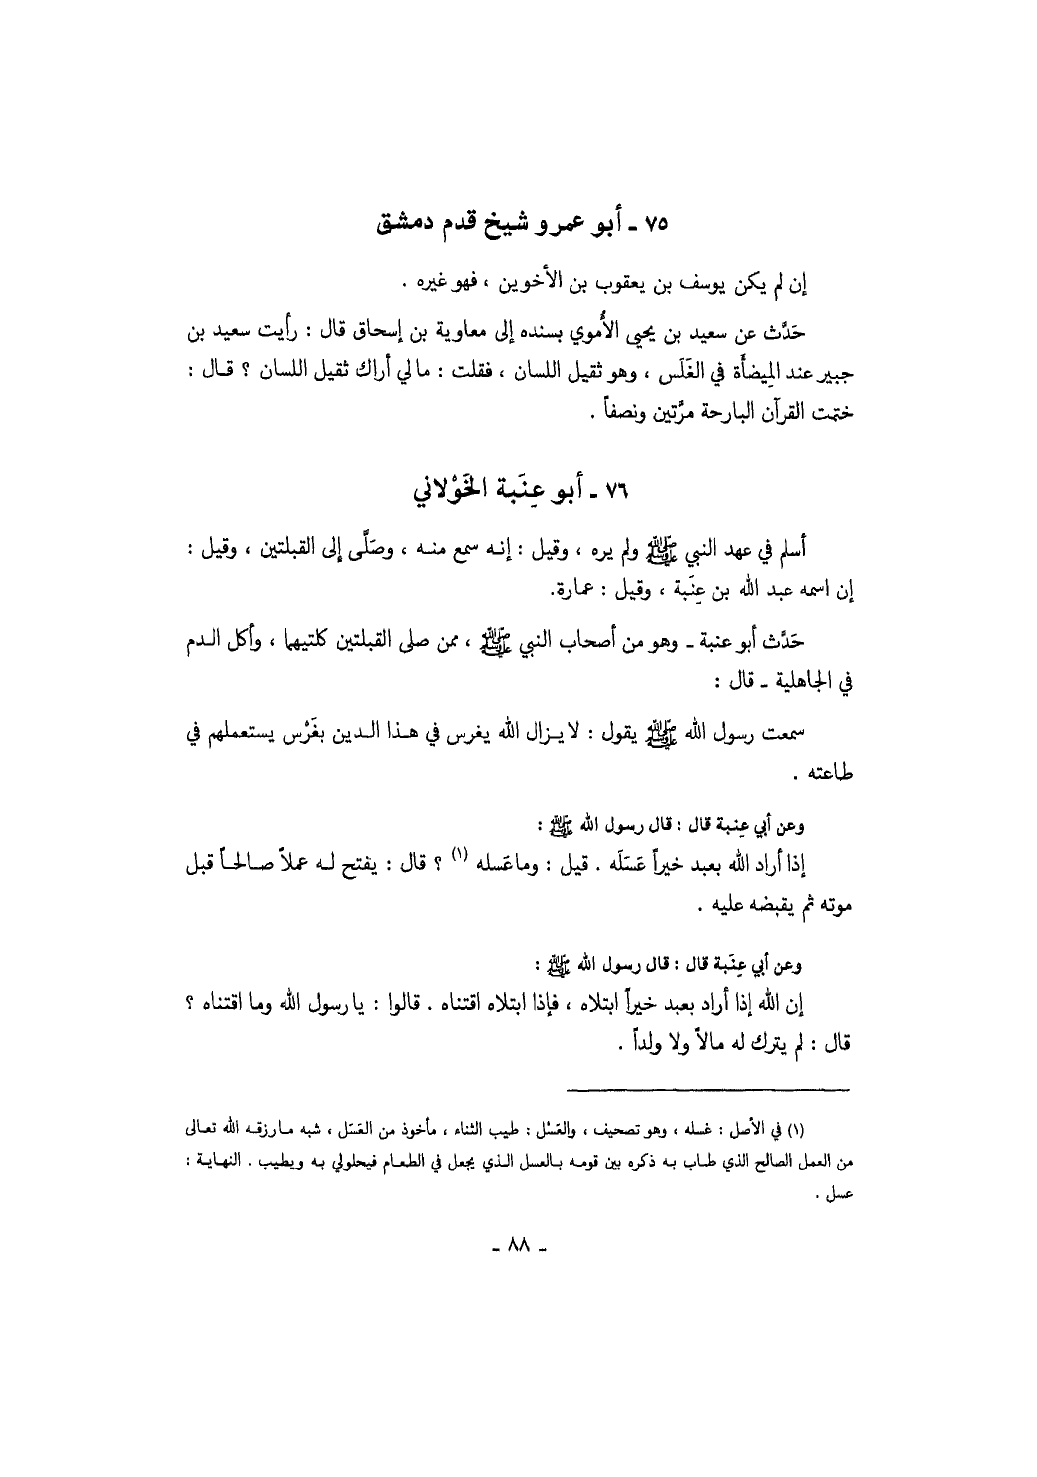 ٧٥ ـ أبو عمرو شيخ قدم دمشق
إن لم يكن يوسف بن يعقوب بن الأخوين ، فهو غيره .
حَدَّث عن سعيد بن يحيى الأُموي بسنده إلى معاوية بن إسحاق قال : رأيت سعيد بن
جبير عند المِيضأة في الغَلَس ، وهو ثقيل اللسان ، فقلت : مالي أراك ثقيل اللسان ؟ قـال :
ختمت القرآن البارحة مرَّتين ونصفاً .
٧٦ ـ أبو عِنَبة الخَوْلاني
أسلم في عهد النبي ﷺ ولم يره ، وقيل : إنـه سمع منـه ، وصَلَّى إلى القبلتين ، وقيل :
إن اسمه عبد الله بن عِنَبة ، وقيل : عمارة.
حَدَّث أبو عنبة ـ وهو من أصحاب النبي ﷺ ، ممن صلى القبلتين كلتيهما ، وأكل الـدم
في الجاهلية ـ قال :
سمعت رسول الله ﷺ يقول : لا يـزال الله يغرس في هـذا الـدين بغَرْس يستعملهم في
طاعته .
وعن أبي عِنبة قال : قال رسول الله ﷺ :
إذا أراد الله بعبد خيراً عَسَلَه . قيل : وما عَسله (١) ؟ قال : يفتح لـه عملاً صـالحـاً قبل
موته ثم يقبضه عليه .
وعن أبي عِنَبة قال : قال رسول الله ﷺ :
إن الله إذا أراد بعبد خيراً ابتلاه ، فإذا ابتلاه اقتناه . قالوا : يا رسول الله وما اقتناه ؟
قال : لم يترك له مالاً ولا ولداً .
(١) في الأصل : غسله ، وهو تصحيف ، والعَسْل : طيب الثناء ، مأخوذ من العَسَل ، شبه مـا رزقـه الله تعـالى
من العمل الصالح الذي طـاب بـه ذكره بين قومـه بـالعسل الـذي يجعل في الطعـام فيحلولي بـه ويطيب . النهايـة :
عسل .
ـ ٨٨ ـ